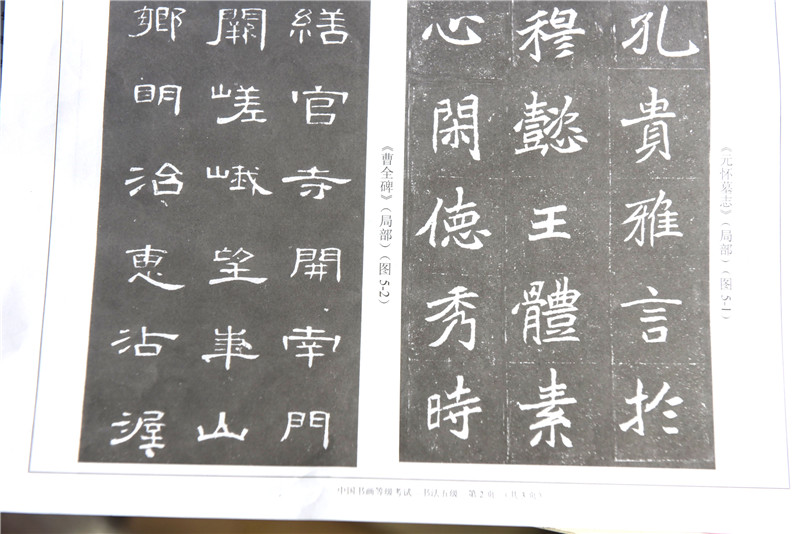 《元怀墓志》(局部)(图5-1)
孔貴雅言於
穆懿王體素
心閑德秀時
《曹全碑》(局部)(图5-2)
繕官寺開南門
闕嵯峨望華山
鄉明治惠沾渥
中国书画等级考试 书法五级 第2页 (共4页)